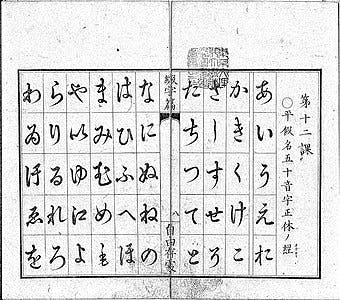 第十二課
〇平假名五十音字正体ノ經
あいうえお
かきくけこ
さしすせそ
たちつてと
綴字篇
八
なにぬねの
はひふへほ
まみむめも
やいゆ江よ
らりるれろ
わゐ汙ゑを